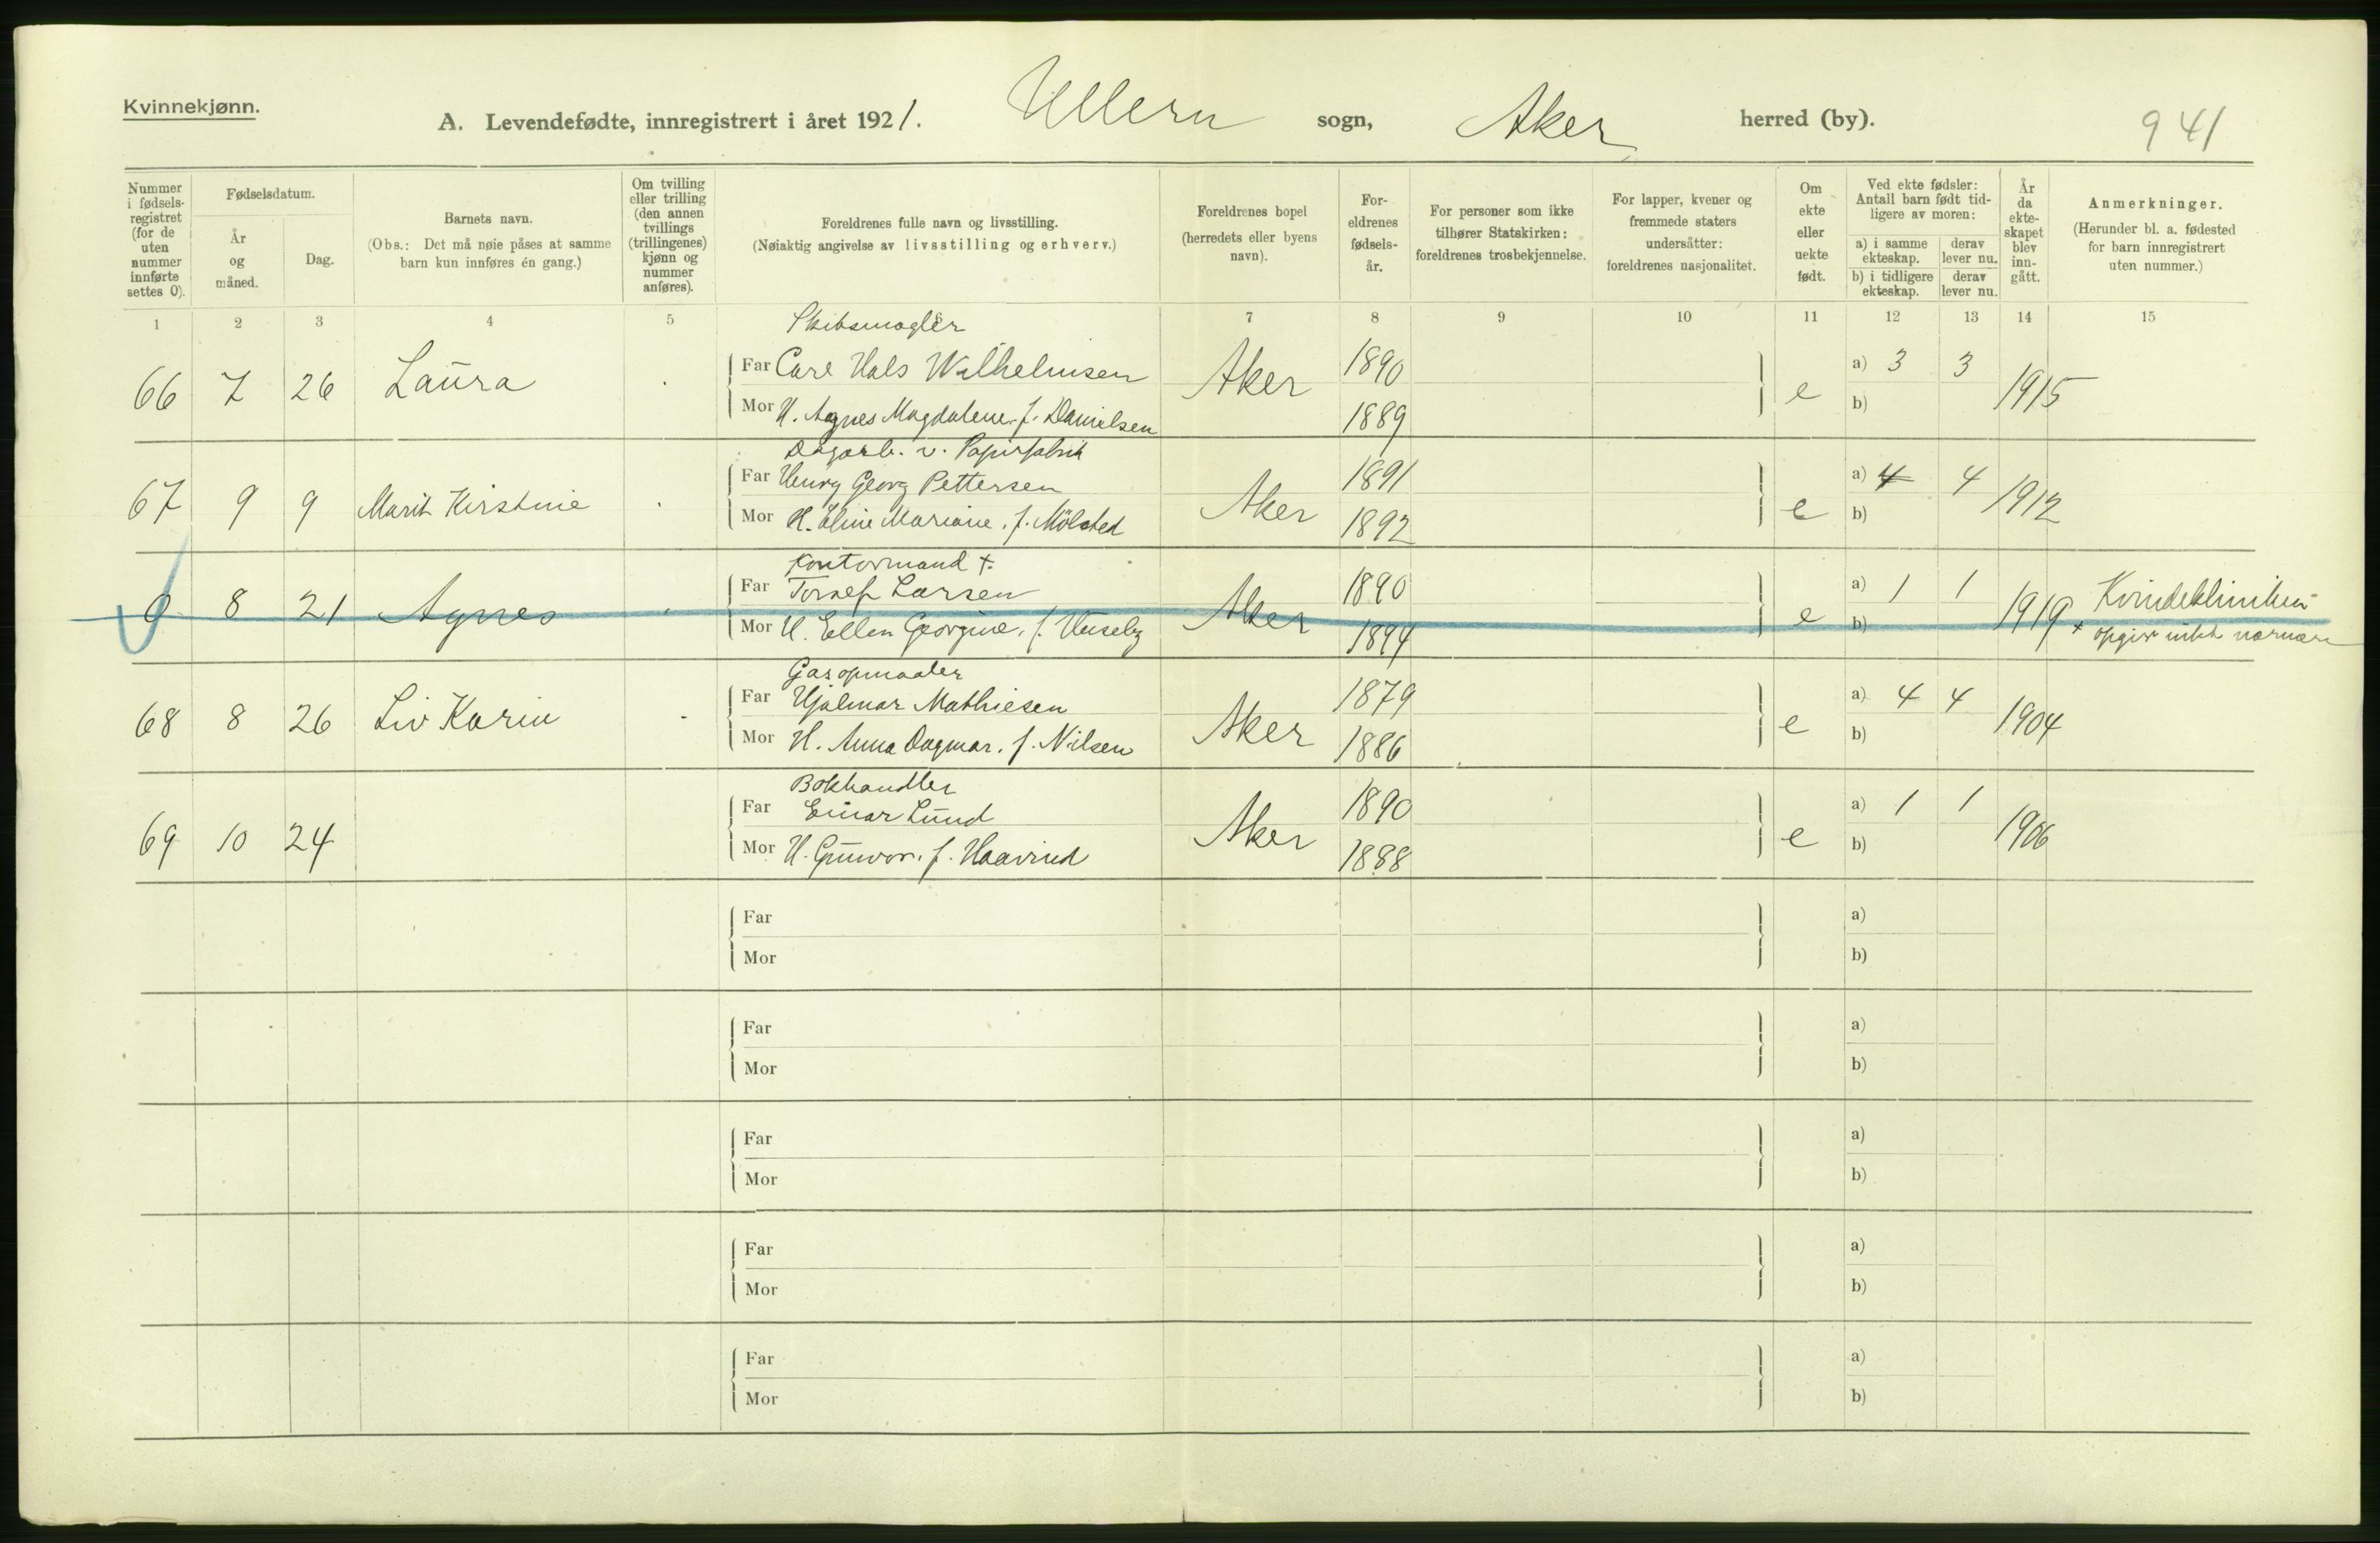 Kvinnekjønn.
A. Levendefødte, innregistrert i året 1921. Ullern sogn, Aker herred (by). 941
Nummer i fødsels- registret (for de uten nummer innførte settes 0).
Fødselsdatum.
År og måned.
Dag.
Barnets navn.
(Obs.: Det må nøie påses at samme barn kun innføres én gang.)
Om tvilling eller trilling (den annen tvillings (trillingenes) kjønn og nummer anføres).
Foreldrenes fulle navn og livsstilling.
(Nøiaktig angivelse av livsstilling og erhverv.)
Foreldrenes bopel (herredets eller byens navn).
For- eldrenes fødsels- år.
For personer som ikke tilhører Statskirken: foreldrenes trosbekjennelse.
For lapper, kvener og fremmede staters undersåtter: foreldrenes nasjonalitet.
Om ekte eller uekte født.
Ved ekte fødsler: Antall barn født tid- ligere av moren:
a) i samme ekteskap.
derav lever nu.
b) i tidligere ekteskap.
derav lever nu.
År da ekte- skapet blev inn- gått.
Anmerkninger.
(Herunder bl. a. fødested for barn innregistrert uten nummer.)
1 2 3 4 5 7 8 9 10 11 12 13 14 15
Skibsmogler
66 7 26 Laura Far Carl Hals Wilhelmsen Aker 1890 e a) 3 3 1915
Mor H. Agnes Magdalene f. Danielsen 1889 b)
Dagarb. v. Papirfabrik
67 9 9 Marit Kirstine Far Henry Georg Pettersen Aker 1891 e a) 4 4 1912
Mor H. Eline Mariane. f. Mölsted 1892 b)
Kontormand +.
0 8 21 Agnes Far Tornef Larsen Aker 1890 e a) 1 1 1919 Kvindekliniken
Mor H. Ellen Georgine. f. Huseby 1894 b) + opgir nærmere
Gasopmaaler
68 8 26 Liv Karin Far Hjalmar Mathiesen Aker 1879 e a) 4 4 1904
Mor H. Anna Dagmar. f. Nilsen 1886 b)
Bokhandler
69 10 24 Far Einar Lund Aker 1890 e a) 1 1 1906
Mor H. Gunvor. f. Haavind 1888 b)
Far a)
Mor b)
Far a)
Mor b)
Far a)
Mor b)
Far a)
Mor b)
Far a)
Mor b)